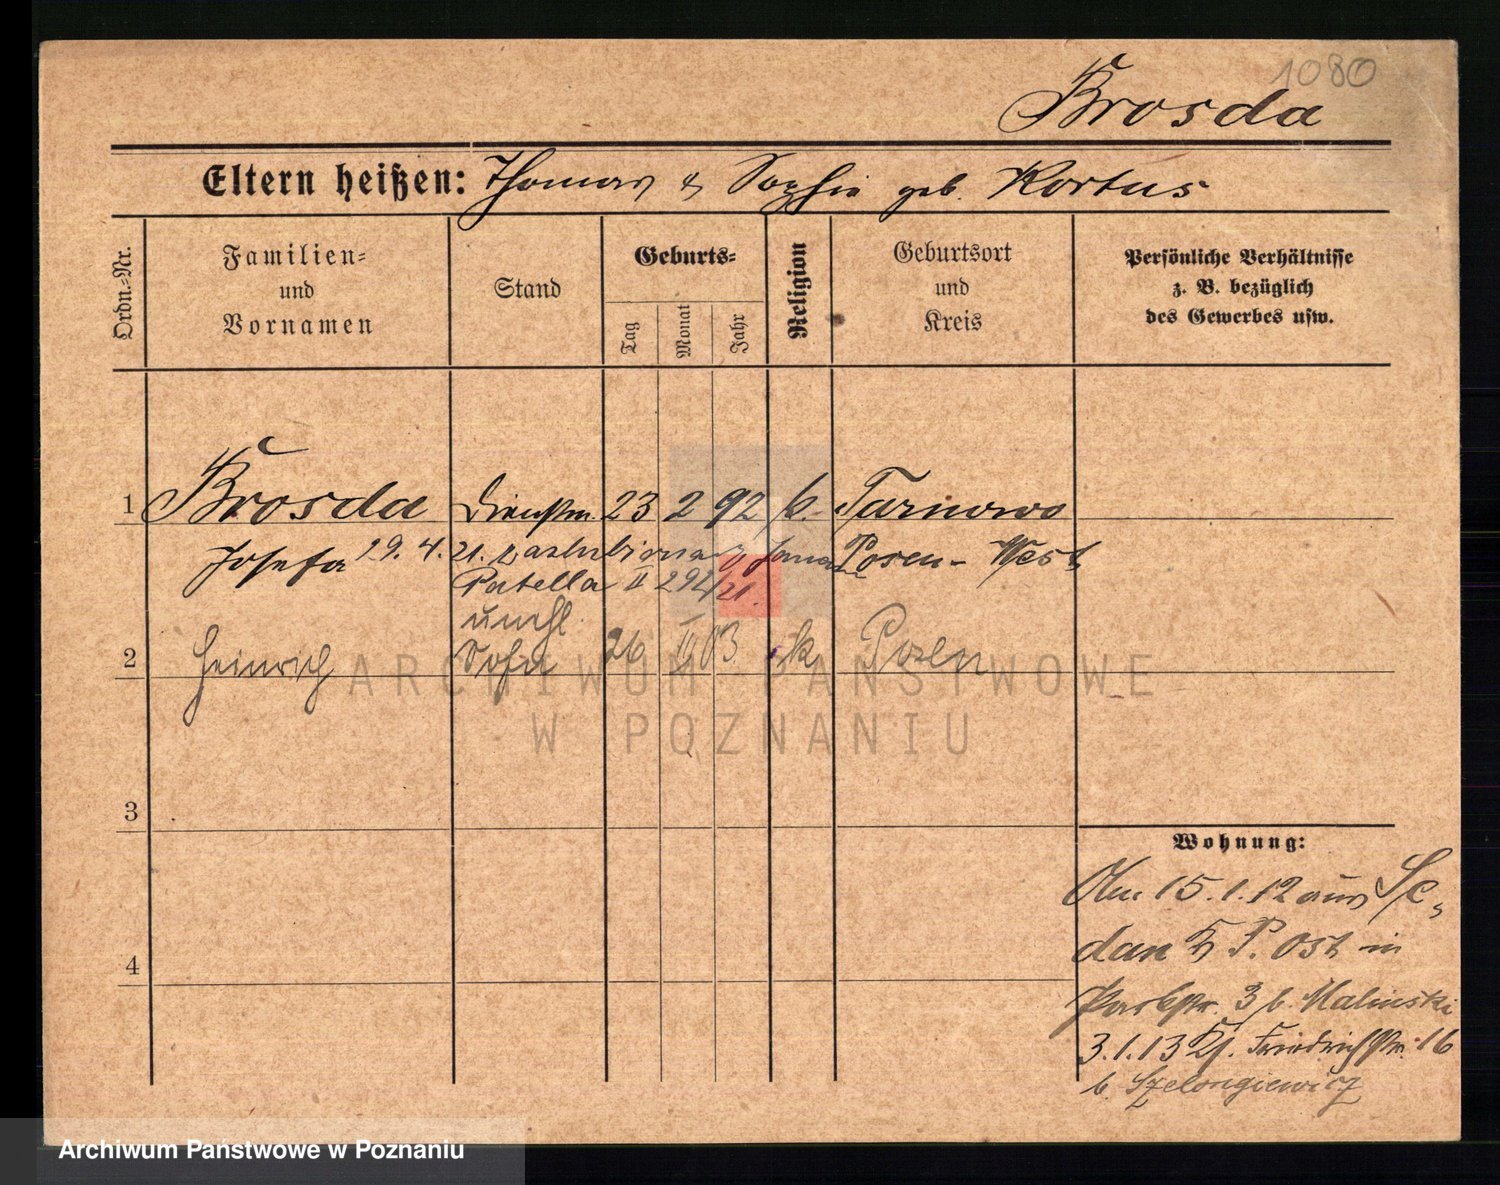 1080
Brosda
Eltern heißen: Thomas & Sophie geb. Kortus
Ordn.-Nr.
Familien-
und
Vornamen
Stand
Geburts-
Tag
Monat
Jahr
Religion
Geburtsort
und
Kreis
Persönliche Verhältnisse
z. B. bezüglich
des Gewerbes usw.
1 Brosda Dienstm. 23 2 92 k. Tarnowo
Josefa 19. 4. 21. poślubiona z Posen-West
Patella II 292/21.
unehl.
2 Heinrich Sohn 26 II 13 k Posen
ARCHIWUM PAŃSTWOWE
W POZNANIU
3
4
Wohnung:
Am 15.1.12 aus Se-
dan K P. Ost in
Parkstr. 3 b. Malinski
3.1.13 Kf. Friedrichstr. 16
b. Szelongiewicz
Archiwum Państwowe w Poznaniu